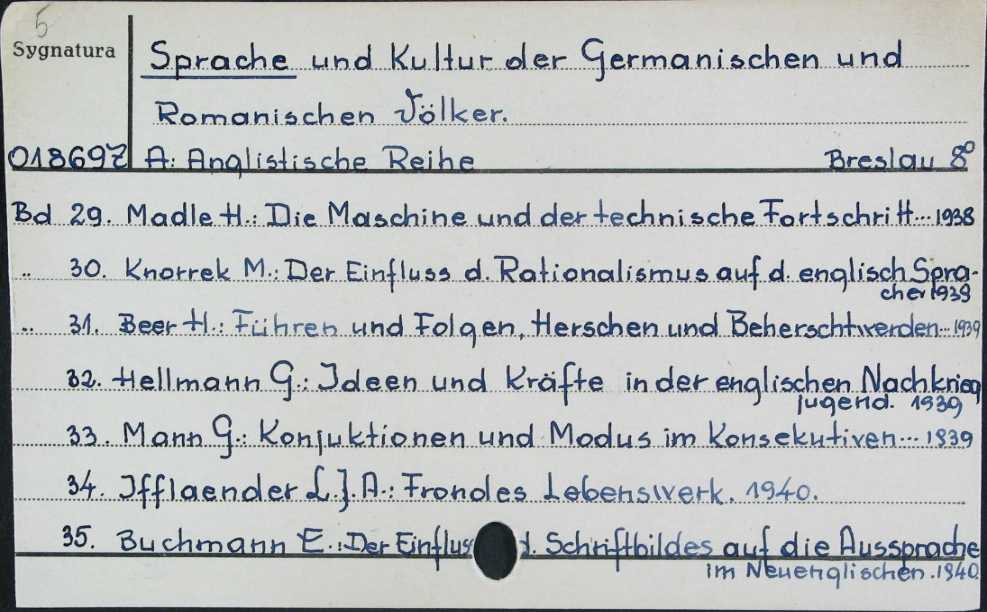 5
Sygnatura
Sprache und Kultur der Germanischen und
Romanischen Völker.
018697 A: Anglistische Reihe Breslau 8°
Bd 29. Madle H.: Die Maschine und der technische Fortschritt... 1938
.. 30. Knorrek M.: Der Einfluss d. Rationalismus auf d. englisch Spra-
che 1939
.. 31. Beer H.: Führen und Folgen, Herschen und Beherschtwerden... 1939
32. Hellmann G.: Ideen und Kräfte in der englischen Nachkrieg
jugend. 1939
33. Mann G.: Konjuktionen und Modus im Konsekutiven... 1939
34. Ifflaender L. J. A.: Frondes Lebenswerk. 1940.
35. Buchmann E.: Der Einflus d. Schriftbildes auf die Aussprache
im Neuenglischen. 1940